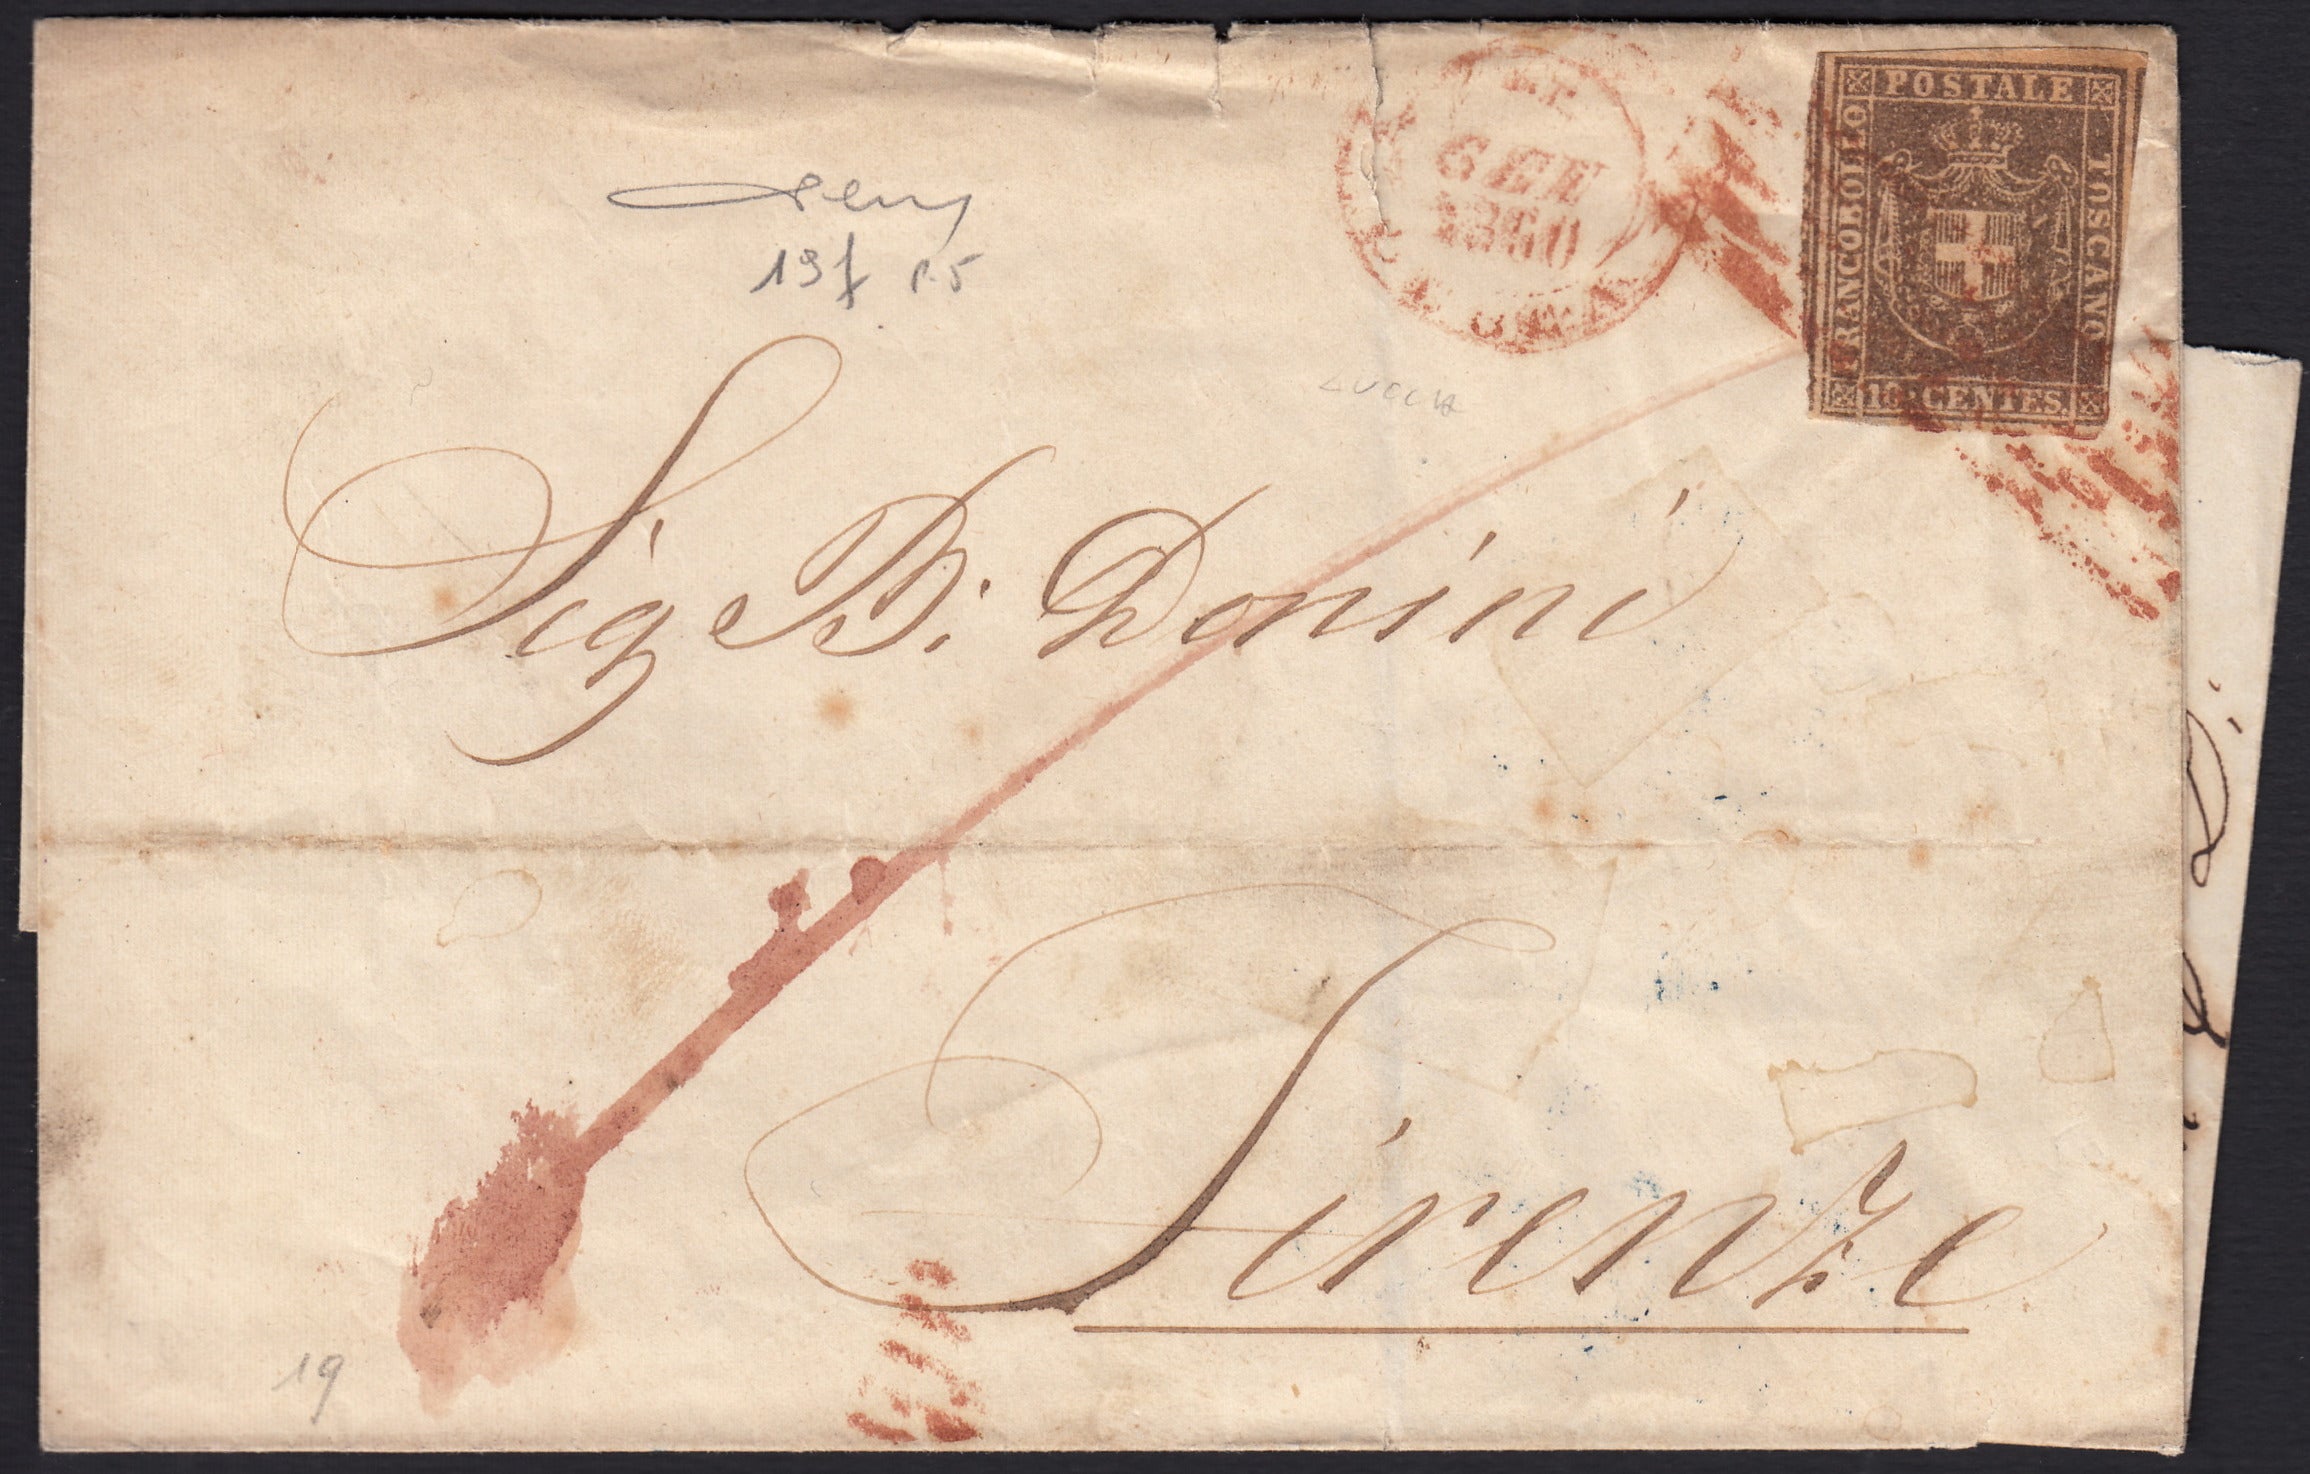 POSTALE
FRANCOBOLLO
TOSCANO
10 CENTES.
6 GEN
1860
19f p.5
LUCCA
Sig.e B. Donini
Firenze
19